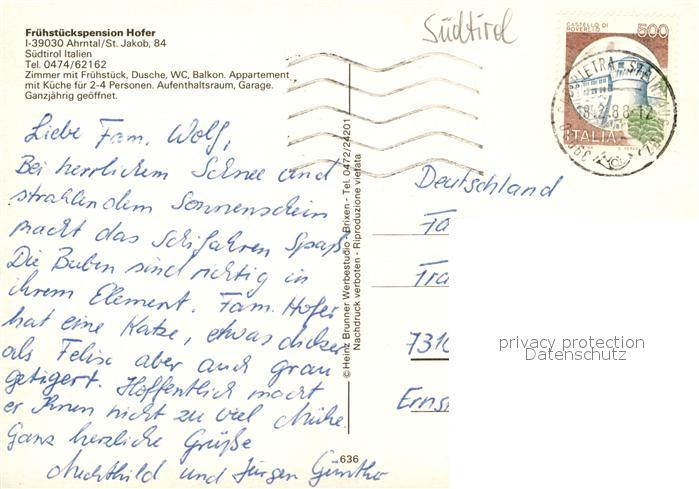 Frühstückspension Hofer
I-39030 Ahrntal/St. Jakob, 84
Südtirol Italien
Tel. 0474/62162
Zimmer mit Frühstück, Dusche, WC, Balkon. Appartement
mit Küche für 2-4 Personen. Aufenthaltsraum, Garage.
Ganzjährig geöffnet.
Südtirol
CASTELLO DI
ROVERETO
500
ITALIA
Liebe Fam. Wolf,
Bei herrlichem Schnee und
strahlendem Sonnenschein
macht das Schifahren Spaß.
Die Buben sind richtig in
ihrem Element. Fam. Hofer
hat eine Katze, etwas dicker
als Felix aber auch grau
getigert. Hoffentlich macht
er Ihnen nicht zu viel Mühe.
Ganz herzliche Grüße
Mechthild und Jürgen Günther
© Heinz Brunner Werbestudio - Brixen - Tel. 0472/24201
Nachdruck verboten - Riproduzione vietata
636
Deutschland
Fa
Tra
7310
Erns
privacy protection
Datenschutz